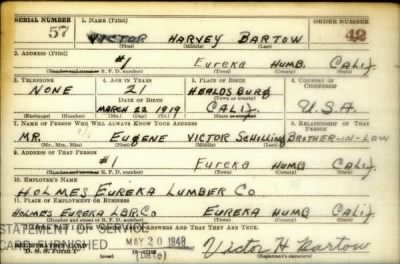 SERIAL NUMBER 1. NAME (Print) ORDER NUMBER
57 VICTOR HARVEY BARTOW 42
(First) (Middle) (Last)
2. ADDRESS (Print)
#1 Eureka HUMB. CALIF.
(Number and street or R. F. D. number) (Town) (County) (State)
3. TELEPHONE 4. AGE IN YEARS 5. PLACE OF BIRTH 6. COUNTRY OF CITIZENSHIP
NONE 21 HEALDSBURG
DATE OF BIRTH (Town or county)
MARCH 22 1919 CALIF. U.S.A.
(Exchange) (Number) (Mo.) (Day) (Yr.) (State or country)
7. NAME OF PERSON WHO WILL ALWAYS KNOW YOUR ADDRESS 8. RELATIONSHIP OF THAT PERSON
MR. EUGENE VICTOR SCHILLING BROTHER-IN-LAW
(Mr., Mrs., Miss) (First) (Middle) (Last)
9. ADDRESS OF THAT PERSON
#1 Eureka HUMB CALIF.
(Number and street or R. F. D. number) (Town) (County) (State)
10. EMPLOYER'S NAME
HOLMES EUREKA LUMBER CO
11. PLACE OF EMPLOYMENT OR BUSINESS
HOLMES EUREKA LBR. CO EUREKA HUMB CALIF.
(Number and street or R. F. D. number) (Town) (County) (State)
ANSWERS AND THAT THEY ARE TRUE.
STATEMENT OF SERVICE
CARD FURNISHED MAY 20 1948 Victor H Bartow
REGISTRATION CARD
D. S. S. Form 1 (Date) (Registrant's signature)